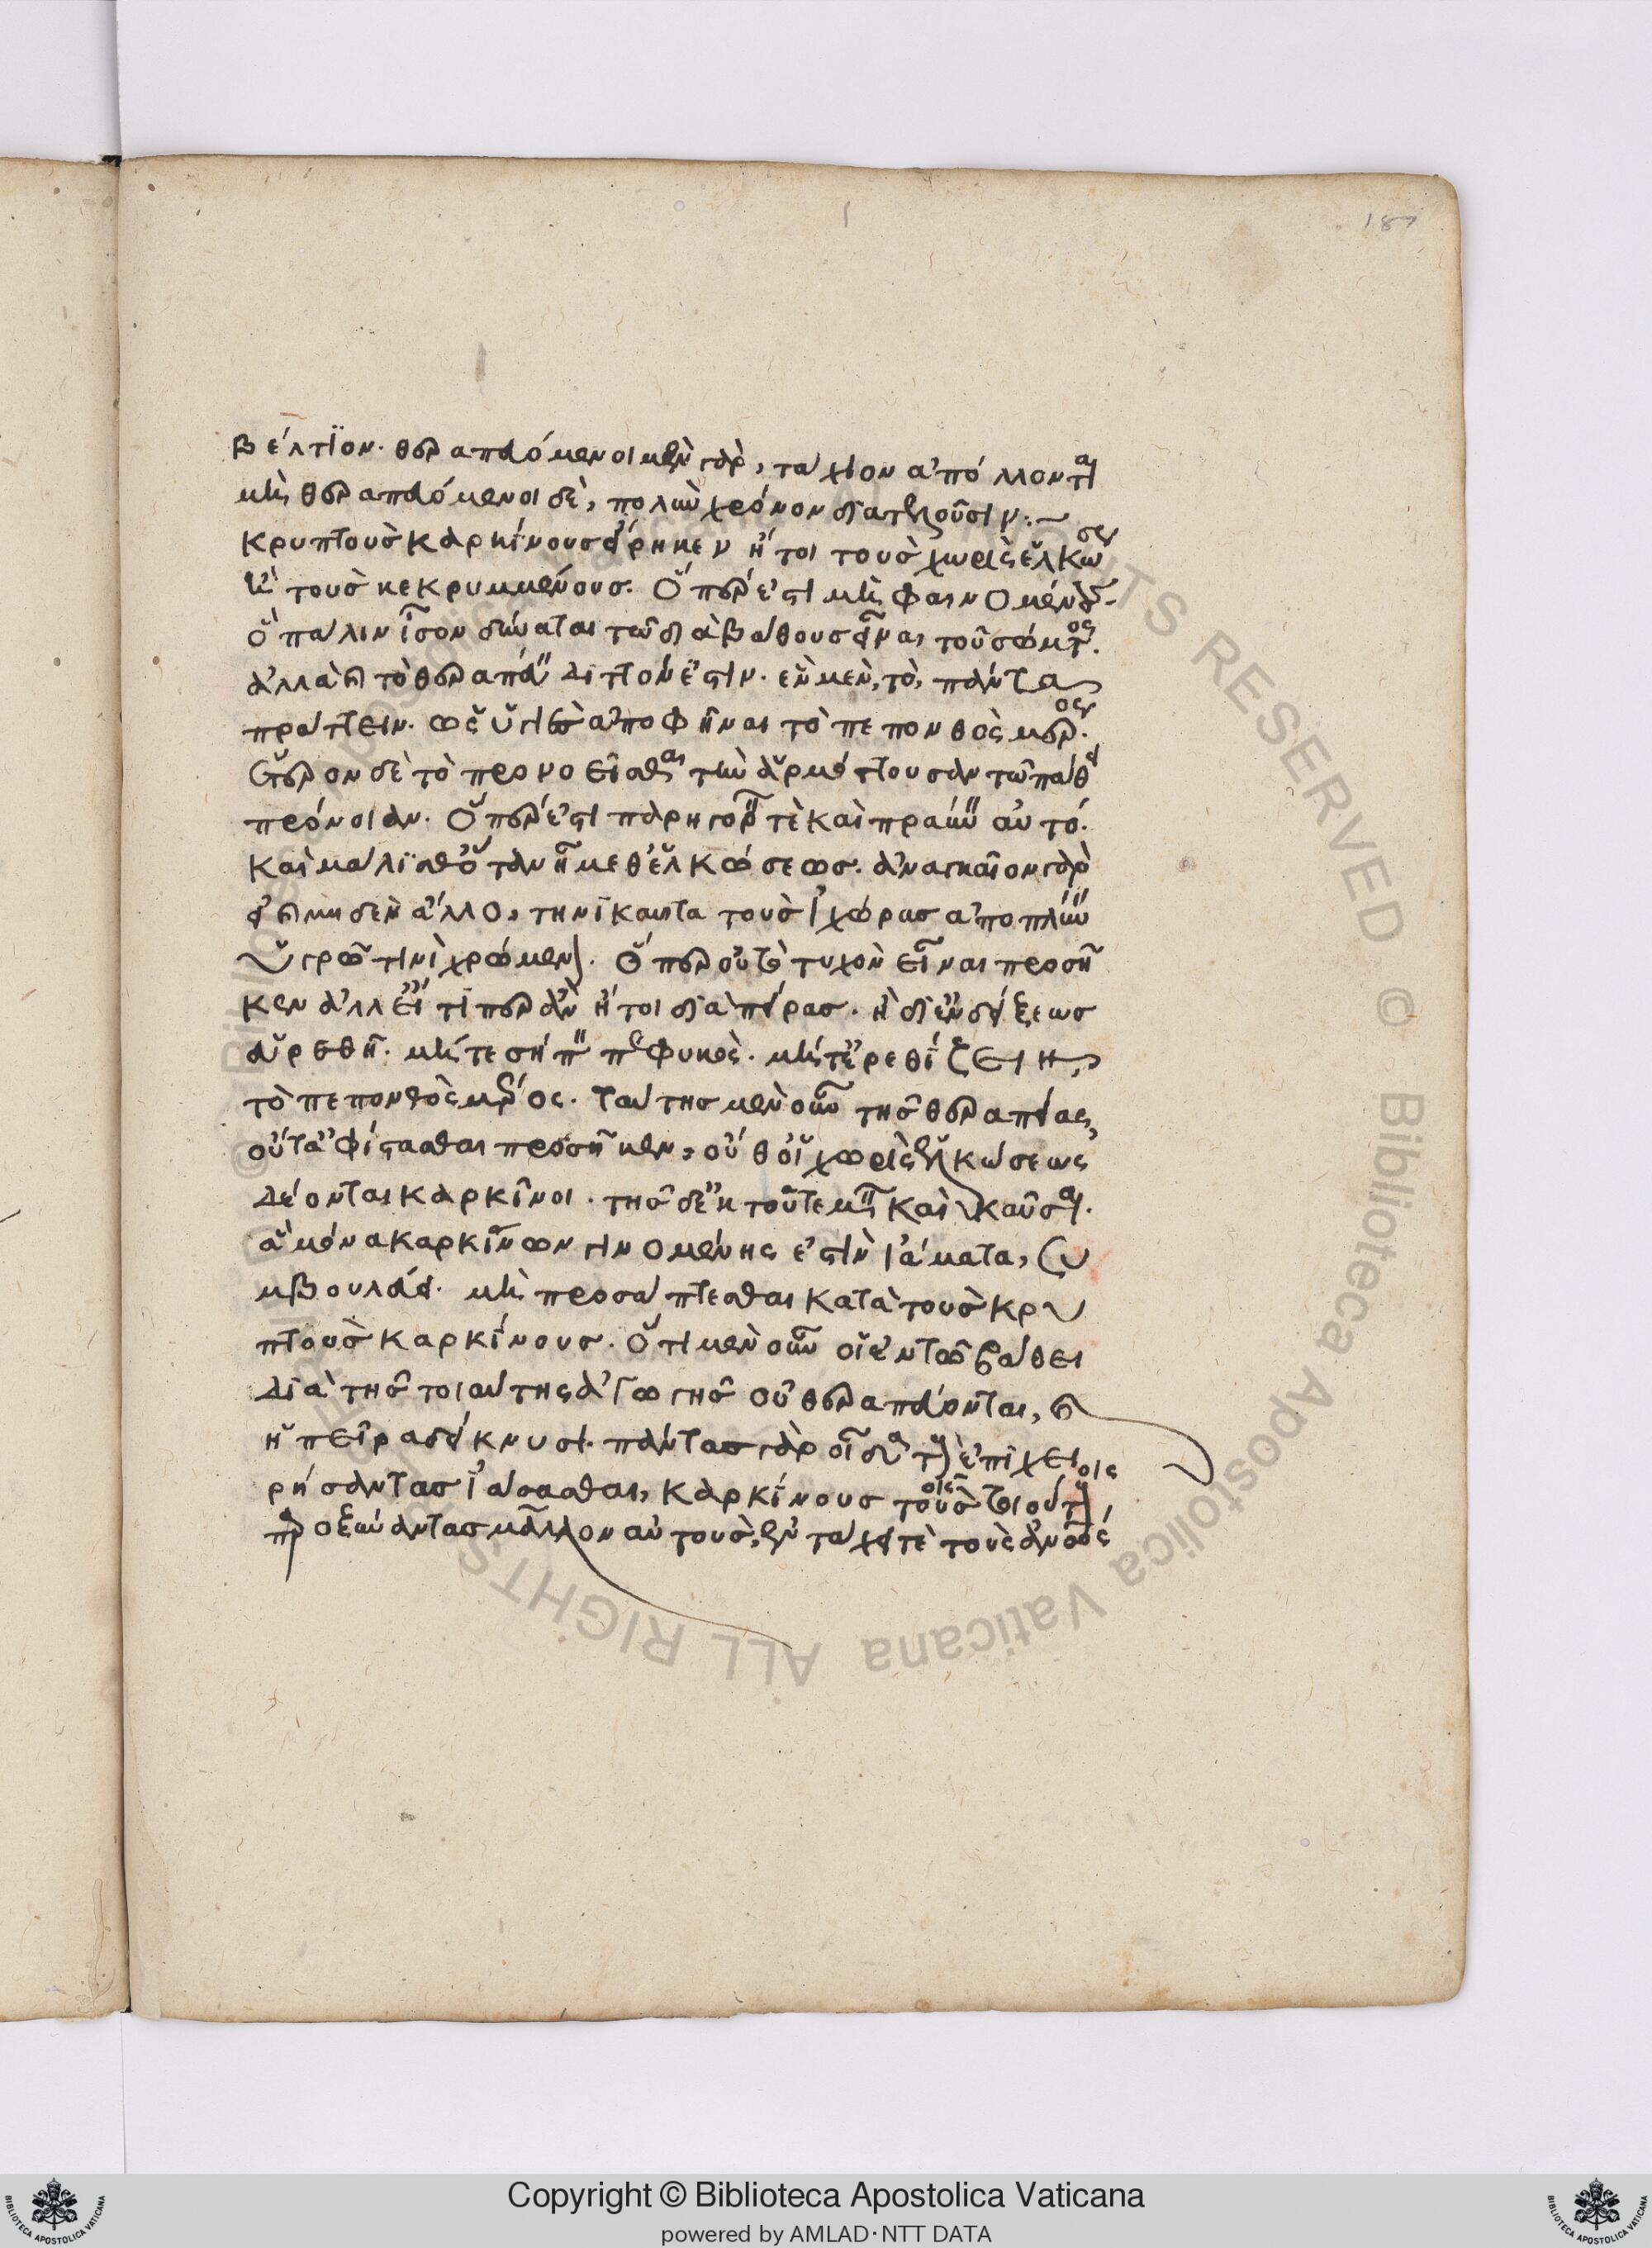 187
βέλτϊον· θεραπευόμενοι μὲν γὰρ, τάχιον ἀπόλλονται
μὴ θεραπευόμενοι δὲ, πολὺν χρόνον διατελοῦσιν:~
κρυπτοὺς καρκίνους εἴρηκεν ἤτοι τοὺς χωρὶς ἑλκώσεως
ἢ τοὺς κεκρυμμένους. ὅπερ ἐστὶ μὴ φαινομένους.
ὃ πάλιν ἶσον δύναται τῶ διὰ βάθους εἶναι τοῦ σώματος.
ἀλλ' ἐπεὶ τὸ θεραπεύειν διττόν ἐστιν. ἓν μὲν, τὸ, πάντα
πράττειν. ὡς ὑγιὲς ἀποφῆναι τὸ πεπονθὸς μέρος.
ἕτερον δὲ τὸ προνοεῖσθαι τὴν ἁρμόττουσαν τῶ πάθει
πρόνοιαν. ὅπερ ἐστὶ παρηγορεῖν τὲ καὶ πραΰνειν αὐτό.
καὶ μάλισθ' ὅταν ἦ μεθ' ἑλκώσεως. ἀναγκαῖον γὰρ
εἰ καὶ μηδὲν ἄλλο, τηνικαῦτα τοὺς ἰχώρας ἀποπλύνειν
ὑγρῶ τινὶ χρώμενον. ὅπερ οὔτε τυχὸν εἶναι προσῆ
κεν ἀλλ' εἴ τι περ ἂν ἤτοι διὰ πείρας. ἢ δι' ἐνδείξεως
εὑρεθῆ. μήτε σήπειν πεφυκὸς. μήτ' ἐρεθίζειν,
τὸ πεπονθὸς μέρος. ταύτης μὲν οὖν τῆς θεραπείας,
οὔτ' ἀφίστασθαι προσῆκεν, οὔθ' οἱ χωρὶς ἑλκώσεως
δέονται καρκῖνοι. τῆς δ' ἐκ τοῦ τεμεῖν καὶ καῦσαι.
ἃ μόνα καρκίνων γινομένης ἐστὶν ἰάματα, συ
μβουλεύει. μὴ προσάπτεσθαι κατὰ τοὺς κρυ
πτοὺς καρκίνους. ὅτι μὲν οὖν οἱ ἐν τῶ βάθει
διὰ τῆς τοιαύτης ἀγωγῆς οὐ θεραπεύονται, καὶ
ἡ πεῖρα δείκνυσι. πάντας γὰρ οἶδα τοὺς ἐπιχει
ρήσαντας ἰάσασθαι, καρκίνους τοὺς τοιούτους,
παροξύναντας μᾶλλον αὐτοὺς, ἐν τάχει τὲ τοὺς ἀνθρώπους
Copyright © Biblioteca Apostolica Vaticana
powered by AMLAD·NTT DATA
© Biblioteca Apostolica Vaticana ALL RIGHTS RESERVED © Biblioteca Apostolica Vaticana ALL RIGHTS RESERVED